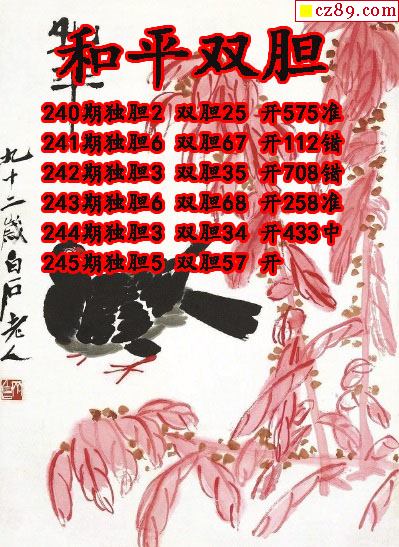 cz89.com
和平双胆
240期独胆2 双胆25 开575准
241期独胆6 双胆67 开112错
242期独胆3 双胆35 开708错
243期独胆6 双胆68 开258准
244期独胆3 双胆34 开433中
245期独胆5 双胆57 开
九十二岁白石老人